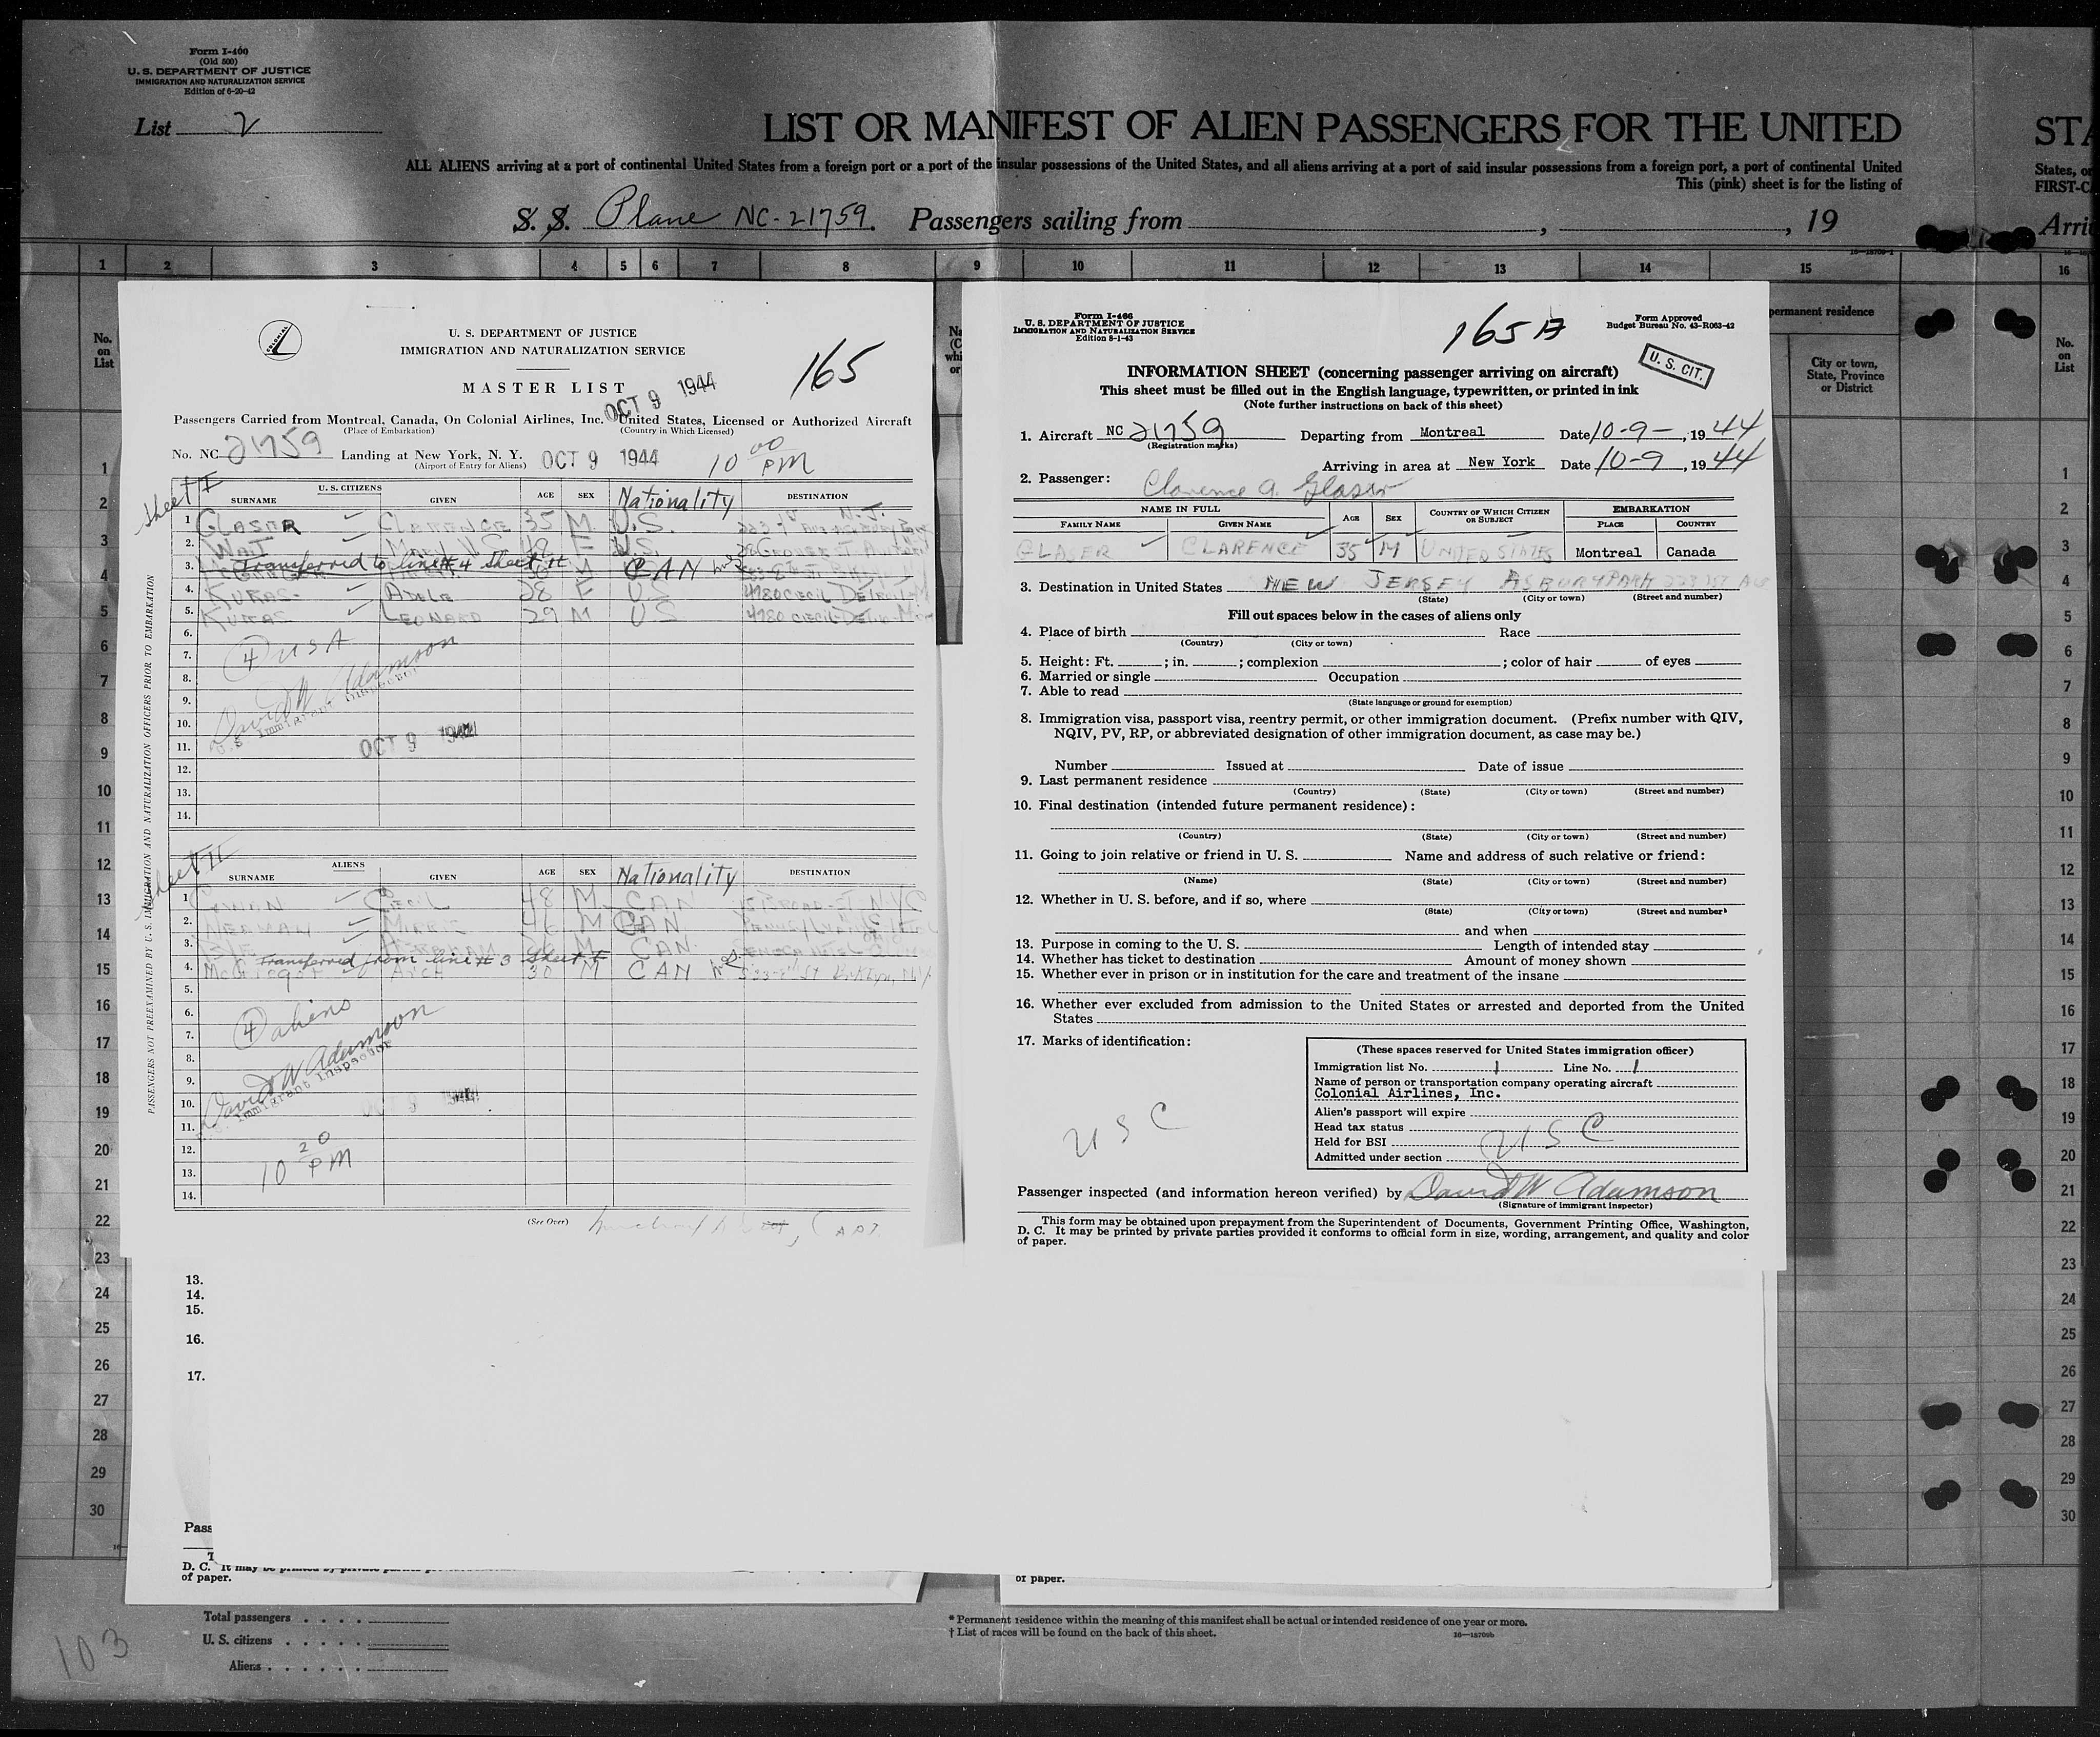 Form I-400
(Old 500)
U. S. DEPARTMENT OF JUSTICE
IMMIGRATION AND NATURALIZATION SERVICE
Edition of 6-20-42
List 2
LIST OR MANIFEST OF ALIEN PASSENGERS FOR THE UNITED
STA
ALL ALIENS arriving at a port of continental United States from a foreign port or a port of the insular possessions of the United States, and all aliens arriving at a port of said insular possessions from a foreign port, a port of continental United
States, or
This (pink) sheet is for the listing of
FIRST-C
S. S. Plane NC-21759. Passengers sailing from , , 19
Arri
1 2 3 4 5 6 7 8 9 10 11 12 13 14 15 16
No. on List
permanent residence
City or town, State, Province or District
No. on List
COLONIAL
U. S. DEPARTMENT OF JUSTICE
IMMIGRATION AND NATURALIZATION SERVICE
165
MASTER LIST
OCT 9 1944
Passengers Carried from Montreal, Canada, On Colonial Airlines, Inc. United States, Licensed or Authorized Aircraft
(Place of Embarkation) (Country in Which Licensed)
No. NC 21759 Landing at New York, N. Y. OCT 9 1944 10 00 PM
(Airport of Entry for Aliens)
Sheet I
U. S. CITIZENS
SURNAME GIVEN AGE SEX Nationality DESTINATION
1 GLASER CLARENCE 35 M. U.S. N.J.
2. WAIT 48 F U.S.
3. Transferred to line # 4 Sheet II M CAN
4. KUKAS ADELE 28 F US 4780 CECIL DETROIT
5. KUKAS LEONARD 29 M US 4780 CECIL
6.
7. 4 USA
8.
9. David W Adamson
10. U.S. Immigrant Inspector
11. OCT 9 1944
12.
13.
14.
PASSENGERS NOT PREEXAMINED BY U. S. IMMIGRATION AND NATURALIZATION OFFICERS PRIOR TO EMBARKATION
Sheet II
ALIENS
SURNAME GIVEN AGE SEX Nationality DESTINATION
1 CECIL 48 M. CAN N.Y.C
2. 46 M CAN
3. ABRAHAM M. CAN.
Transferred from line # 3 Sheet I
4. ARCH 30 M CAN
5.
6. 4 aliens
7.
8.
9. David W Adamson
10. Immigrant Inspector OCT 9
11.
12. 10 20 PM
13.
14.
(See Over)
Form I-466
U. S. DEPARTMENT OF JUSTICE
IMMIGRATION AND NATURALIZATION SERVICE
Edition 8-1-43
165 A
Form Approved
Budget Bureau No. 43-R063-42
U. S. CIT.
INFORMATION SHEET (concerning passenger arriving on aircraft)
This sheet must be filled out in the English language, typewritten, or printed in ink
(Note further instructions on back of this sheet)
1. Aircraft NC 21759 Departing from Montreal Date 10-9-, 19 44
(Registration marks)
Arriving in area at New York Date 10-9, 19 44
2. Passenger: Clarence A. Glaser
NAME IN FULL AGE SEX COUNTRY OF WHICH CITIZEN OR SUBJECT EMBARKATION
FAMILY NAME GIVEN NAME PLACE COUNTRY
GLASER CLARENCE 35 M UNITED STATES Montreal Canada
3. Destination in United States NEW JERSEY ASBURY PARK
(State) (City or town) (Street and number)
Fill out spaces below in the cases of aliens only
4. Place of birth Race
(Country) (City or town)
5. Height: Ft. ; in. ; complexion ; color of hair of eyes
6. Married or single Occupation
7. Able to read
(State language or ground for exemption)
8. Immigration visa, passport visa, reentry permit, or other immigration document. (Prefix number with QIV,
NQIV, PV, RP, or abbreviated designation of other immigration document, as case may be.)
Number Issued at Date of issue
9. Last permanent residence
(Country) (State) (City or town) (Street and number)
10. Final destination (intended future permanent residence):
(Country) (State) (City or town) (Street and number)
11. Going to join relative or friend in U. S. Name and address of such relative or friend:
(Name) (State) (City or town) (Street and number)
12. Whether in U. S. before, and if so, where
(State) (City or town) (Street and number)
and when
13. Purpose in coming to the U. S. Length of intended stay
14. Whether has ticket to destination Amount of money shown
15. Whether ever in prison or in institution for the care and treatment of the insane
16. Whether ever excluded from admission to the United States or arrested and deported from the United
States
17. Marks of identification:
(These spaces reserved for United States immigration officer)
Immigration list No. 1 Line No. 1
Name of person or transportation company operating aircraft
Colonial Airlines, Inc.
Alien's passport will expire
Head tax status
Held for BSI
Admitted under section
USC
USC
Passenger inspected (and information hereon verified) by David W Adamson
(Signature of immigrant inspector)
This form may be obtained upon prepayment from the Superintendent of Documents, Government Printing Office, Washington,
D. C. It may be printed by private parties provided it conforms to official form in size, wording, arrangement, and quality and color
of paper.
13.
14.
15.
16.
17.
Pass
D. C. It may be printed by private
of paper.
of paper.
Total passengers
U. S. citizens
Aliens
* Permanent residence within the meaning of this manifest shall be actual or intended residence of one year or more.
† List of races will be found on the back of this sheet.
16—18700b
103